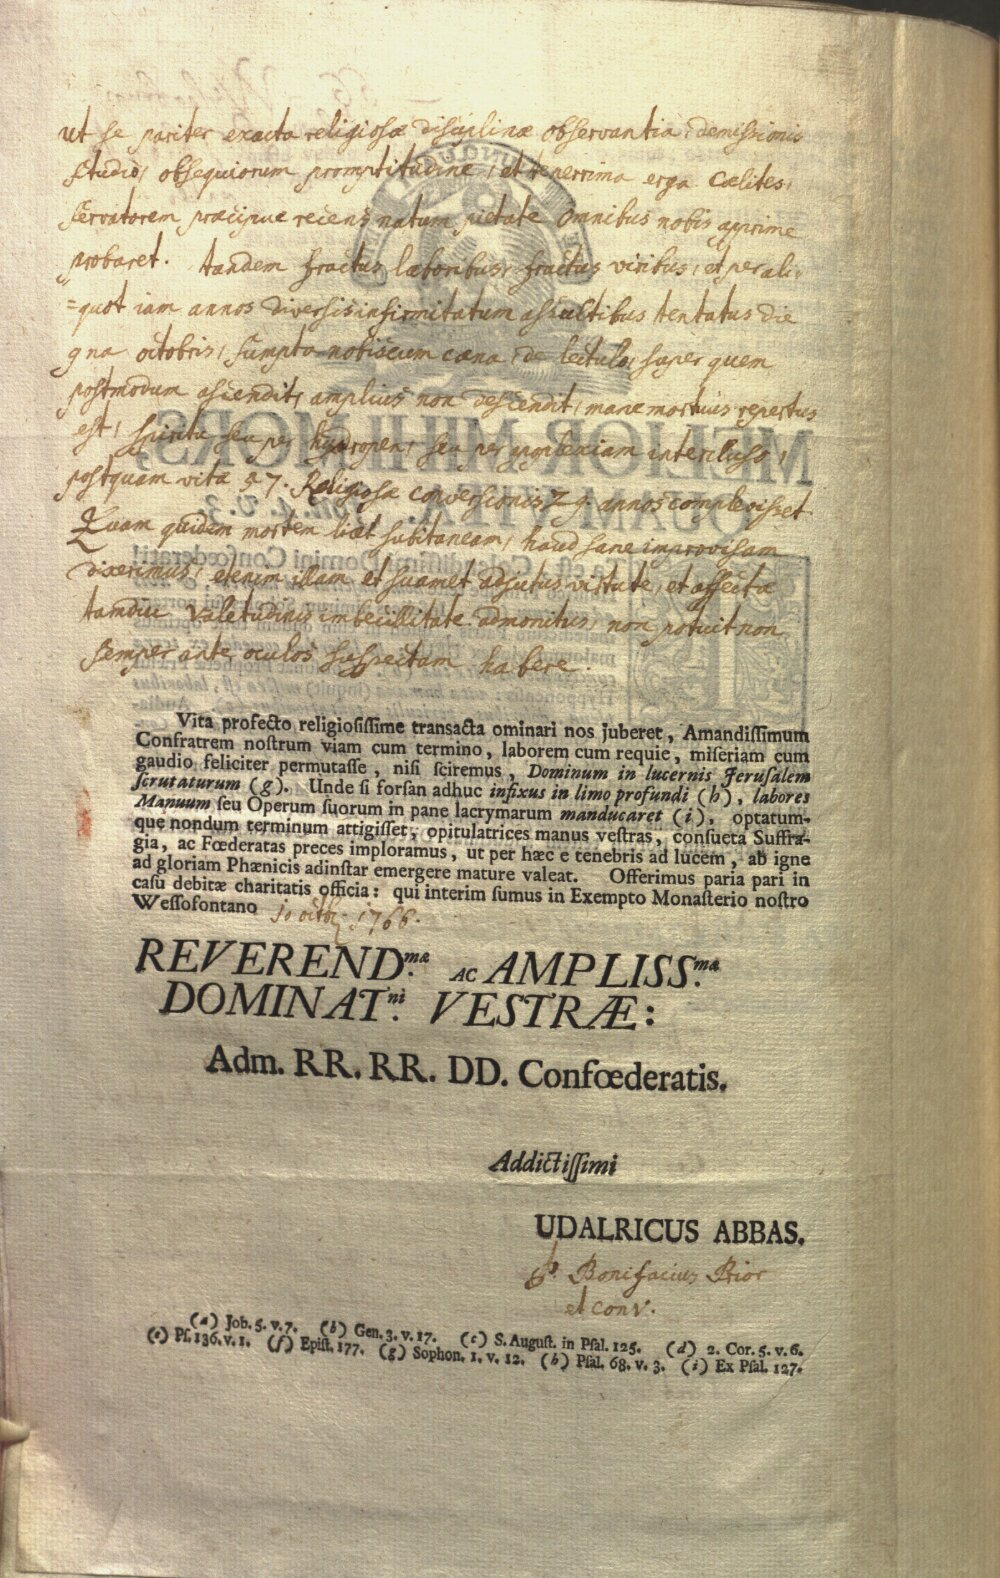 ut se pariter exacta religiosæ disciplinæ observantia, demissionis
studio, obsequiorum promptitudine, et tenerrima erga Cælites,
servatorem præcipue recens natum pietate omnibus nobis apprime
probaret. tandem fractus laboribus, fractus viribus, et per ali=
=quot iam annos diversis infirmitatum assultibus tentatus die
9na octobris, sumpta nobiscum cæna, de lectulo, super quem
postmodum ascendit, amplius non descendit, mane mortuus repertus
est, spiritu seu per hydropem, seu per apoplexiam intercluso,
postquam vitæ 57. Religiosæ conversionis 29. annos complevisset.
Quam quidem mortem licet subitaneam, haud sane improvisam
dixerimus, etenim illam et suamet adjutus virtute, et affectæ
tamdiu valetudinis imbecillitate admonitus, non potuit non
semper ante oculos suspectam habere
Vita profecto religiosissime transacta ominari nos juberet, Amandissimum
Confratrem nostrum viam cum termino, laborem cum requie, miseriam cum
gaudio feliciter permutasse, nisi sciremus, Dominum in lucernis Jerusalem
scrutaturum (g). Unde si forsan adhuc infixus in limo profundi (h), labores
Manuum seu Operum suorum in pane lacrymarum manducaret (i), optatum-
que nondum terminum attigisset, opitulatrices manus vestras, consueta Suffra-
gia, ac Fœderatas preces imploramus, ut per hæc e tenebris ad lucem, ab igne
ad gloriam Phænicis adinstar emergere mature valeat. Offerimus paria pari in
casu debitæ charitatis officia: qui interim sumus in Exempto Monasterio nostro
Wessofontano 10 octob. 1766.
REVEREND.mæ AC AMPLISS.mæ
DOMINAT.ni VESTRÆ:
Adm. RR. RR. DD. Confœderatis.
Addictissimi
UDALRICUS ABBAS.
P. Bonifacius Prior
et conv.
(a) Job. 5. v. 7. (b) Gen. 3. v. 17. (c) S. August. in Psal. 125. (d) 2. Cor. 5. v. 6.
(e) Ps. 136. v. 1. (f) Epist. 177. (g) Sophon. 1. v. 12. (h) Psal. 68. v. 3. (i) Ex Psal. 127.